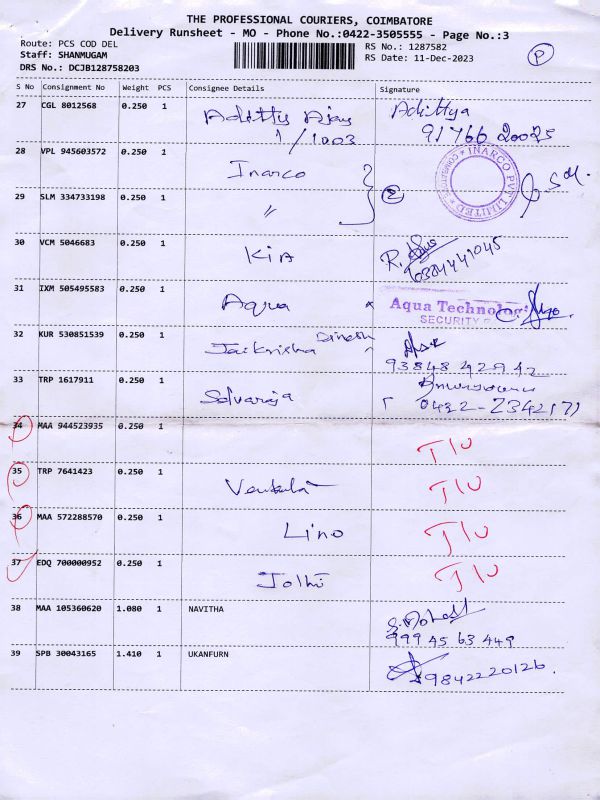 THE PROFESSIONAL COURIERS, COIMBATORE
Delivery Runsheet - MO - Phone No.:0422-3505555 - Page No.:3
Route: PCS COD DEL
RS No.: 1287582
P
Staff: SHANMUGAM
RS Date: 11-Dec-2023
DRS No.: DCJB128758203
S No Consignment No Weight PCS Consignee Details Signature
27 CGL 8012568 0.250 1 Adittya Ajay Adittya
1/1003 91766 20025
28 VPL 945603572 0.250 1 Inarco INARCO PVT LIMITED
29 SLM 334733198 0.250 1 〃 2
30 VCM 5046683 0.250 1 KiA R.
31 IXM 505495583 0.250 1 Aqua Aqua Technolog
SECURITY
32 KUR 530851539 0.250 1 Jaikrisha Dinesh
93848 42942
33 TRP 1617911 0.250 1 Selvaraja
34 MAA 944523935 0.250 1
35 TRP 7641423 0.250 1
36 MAA 572288570 0.250 1 Lino
37 EDQ 700000952 0.250 1
38 MAA 105360620 1.080 1 NAVITHA
999 45 63 449
39 SPB 30043165 1.410 1 UKANFURN 9842220126.